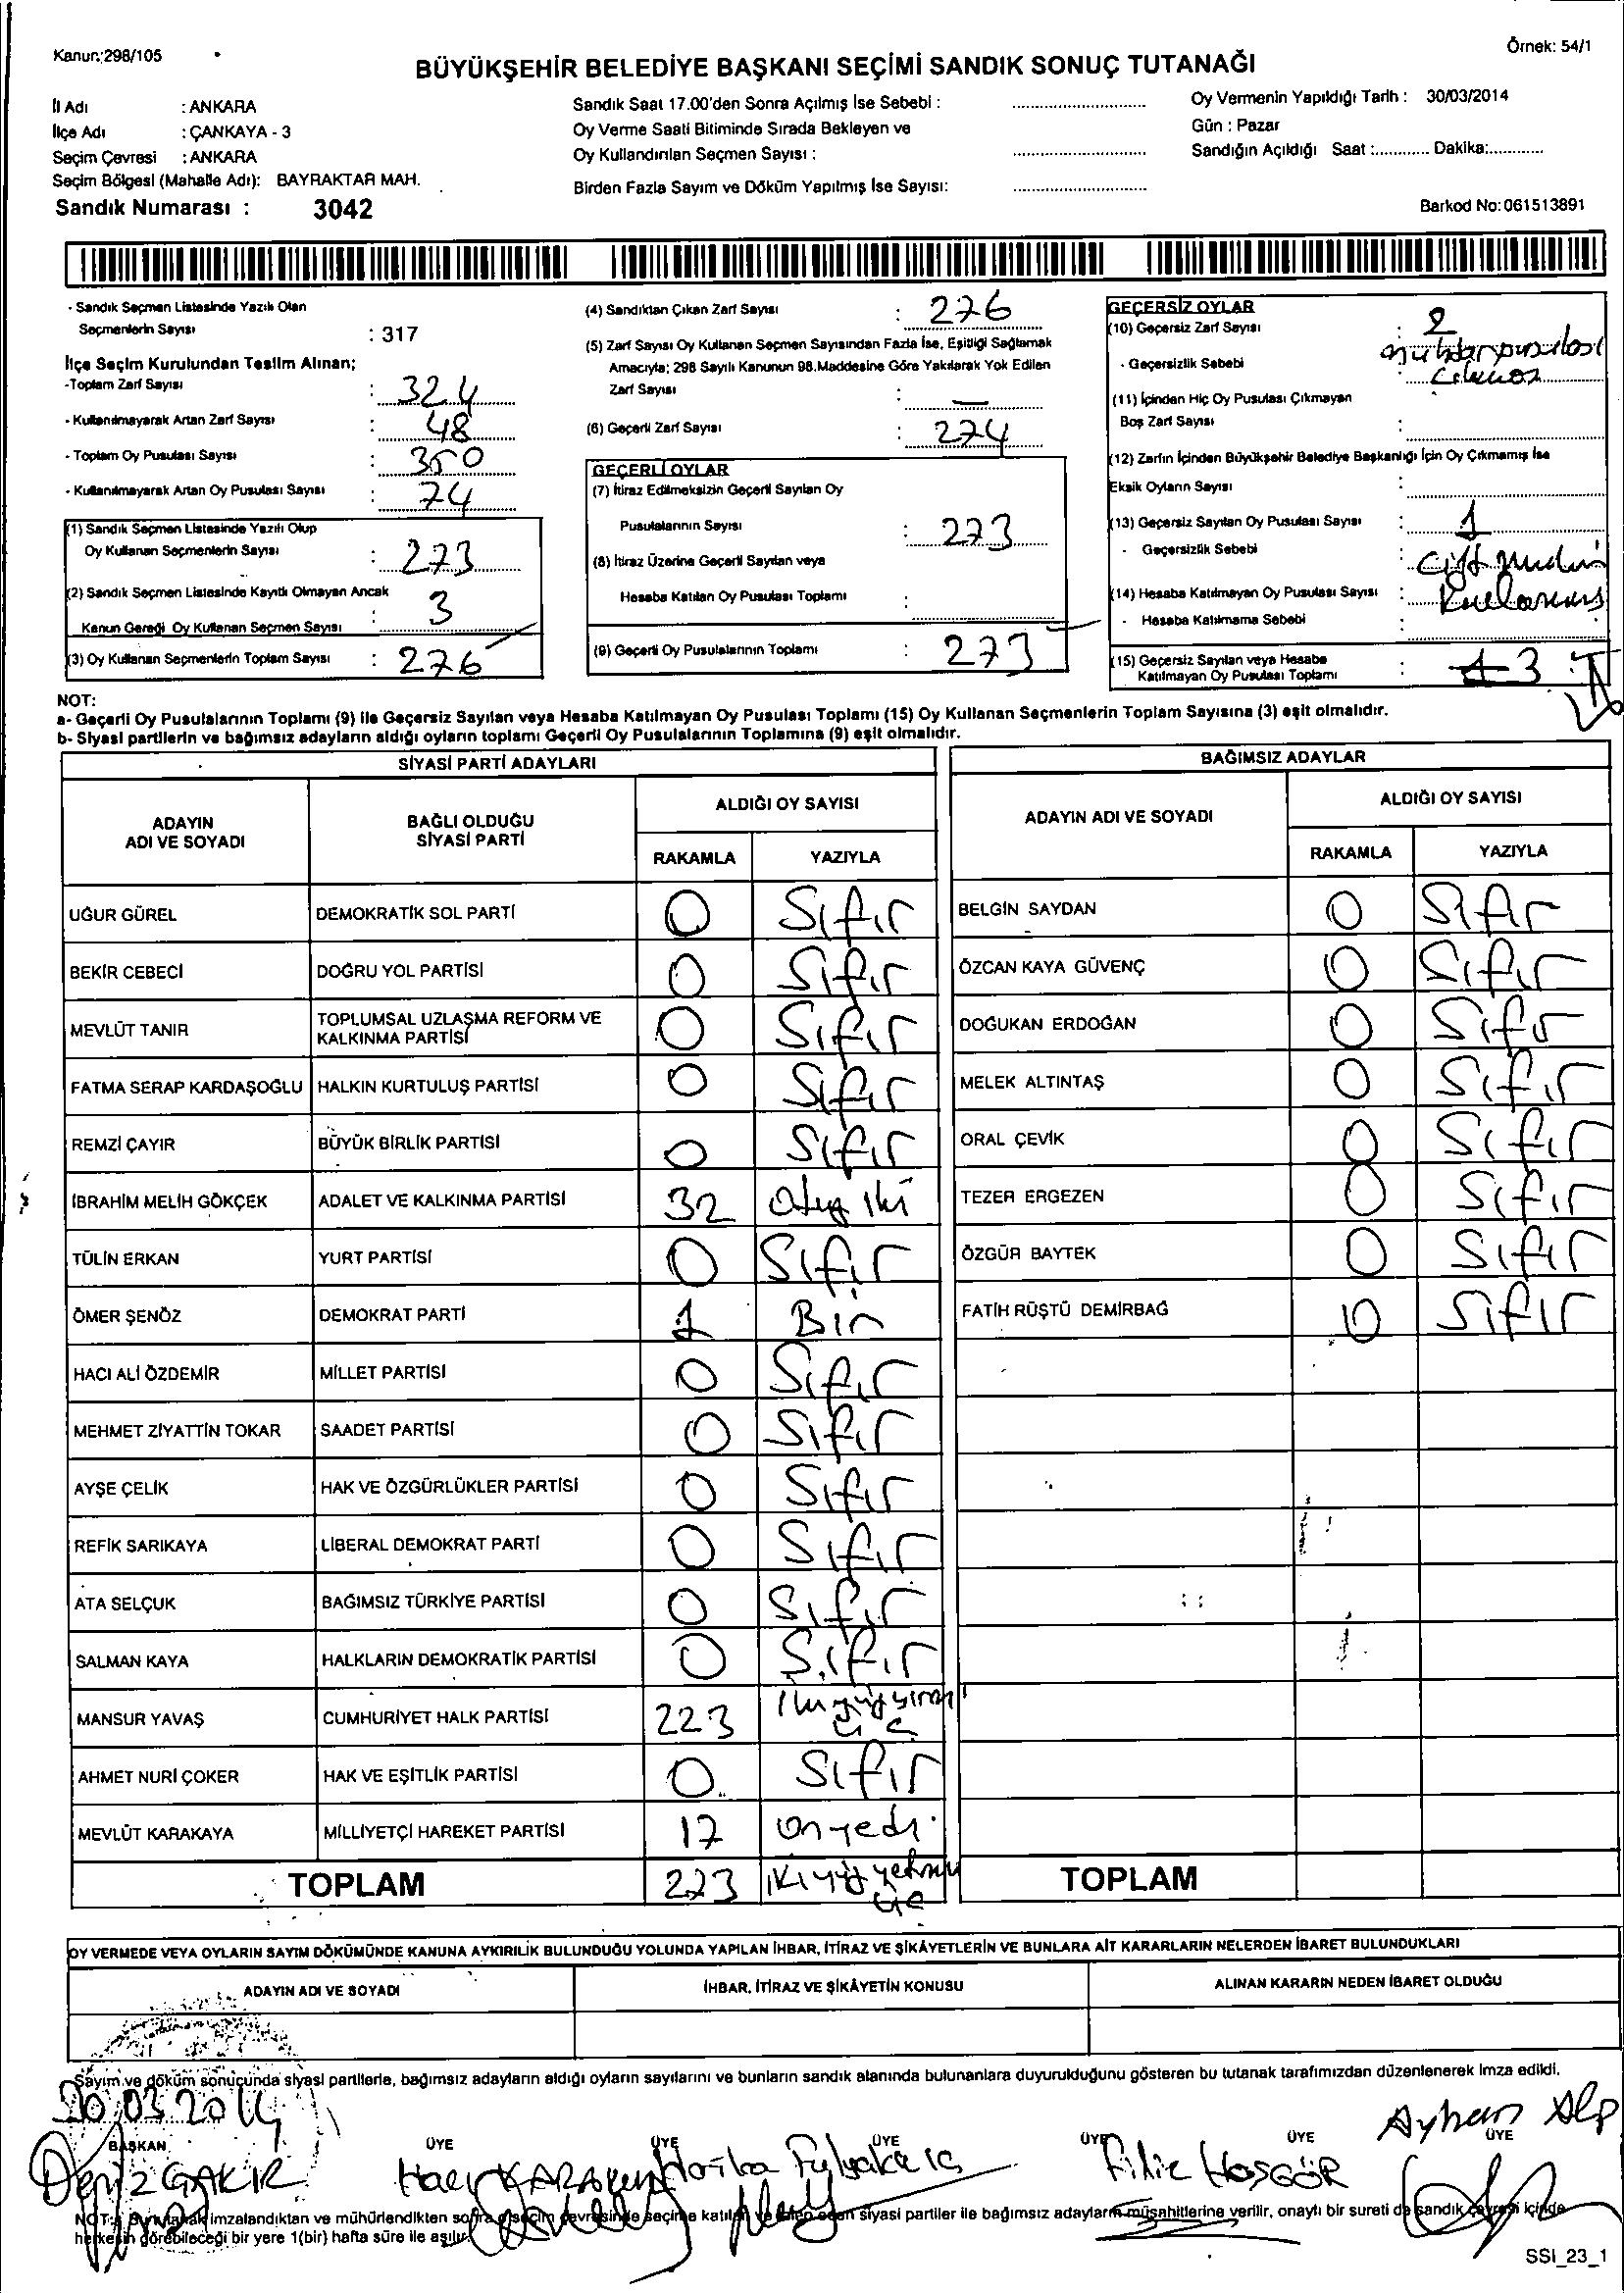 Kanun:298/105
Örnek: 54/1
BÜYÜKŞEHİR BELEDİYE BAŞKANI SEÇİMİ SANDIK SONUÇ TUTANAĞI
İl Adı : ANKARA
İlçe Adı : ÇANKAYA - 3
Seçim Çevresi : ANKARA
Seçim Bölgesi (Mahalle Adı): BAYRAKTAR MAH.
Sandık Numarası : 3042
Sandık Saat 17.00'den Sonra Açılmış İse Sebebi :
Oy Verme Saati Bitiminde Sırada Bekleyen ve
Oy Kullandırılan Seçmen Sayısı :
Birden Fazla Sayım ve Döküm Yapılmış İse Sayısı:
Oy Vermenin Yapıldığı Tarih : 30/03/2014
Gün : Pazar
Sandığın Açıldığı Saat :............ Dakika:............
Barkod No:061513891
- Sandık Seçmen Listesinde Yazılı Olan
Seçmenlerin Sayısı : 317
İlçe Seçim Kurulundan Teslim Alınan;
-Toplam Zarf Sayısı : 324
- Kullanılmayarak Artan Zarf Sayısı : 48
- Toplam Oy Pusulası Sayısı : 350
- Kullanılmayarak Artan Oy Pusulası Sayısı : 74
(1) Sandık Seçmen Listesinde Yazılı Olup
Oy Kullanan Seçmenlerin Sayısı : 273
(2) Sandık Seçmen Listesinde Kayıtlı Olmayan Ancak
Kanun Gereği Oy Kullanan Seçmen Sayısı : 3
(3) Oy Kullanan Seçmenlerin Toplam Sayısı : 276
(4) Sandıktan Çıkan Zarf Sayısı : 276
(5) Zarf Sayısı Oy Kullanan Seçmen Sayısından Fazla İse, Eşitliği Sağlamak
Amacıyla; 298 Sayılı Kanunun 98.Maddesine Göre Yakılarak Yok Edilen
Zarf Sayısı : —
(6) Geçerli Zarf Sayısı : 274
GEÇERLİ OYLAR
(7) İtiraz Edilmeksizin Geçerli Sayılan Oy
Pusulalarının Sayısı : 273
(8) İtiraz Üzerine Geçerli Sayılan veya
Hesaba Katılan Oy Pusulası Toplamı :
(9) Geçerli Oy Pusulalarının Toplamı : 273
GEÇERSİZ OYLAR
(10) Geçersiz Zarf Sayısı : 2
- Geçersizlik Sebebi : muhtar pusulası
(11) İçinden Hiç Oy Pusulası Çıkmayan
Boş Zarf Sayısı :
(12) Zarfın İçinden Büyükşehir Belediye Başkanlığı İçin Oy Çıkmamış İse
Eksik Oyların Sayısı :
(13) Geçersiz Sayılan Oy Pusulası Sayısı : 1
- Geçersizlik Sebebi : çift mühür
(14) Hesaba Katılmayan Oy Pusulası Sayısı :
- Hesaba Katılmama Sebebi :
(15) Geçersiz Sayılan veya Hesaba
Katılmayan Oy Pusulası Toplamı : 3
NOT:
a- Geçerli Oy Pusulalarının Toplamı (9) ile Geçersiz Sayılan veya Hesaba Katılmayan Oy Pusulası Toplamı (15) Oy Kullanan Seçmenlerin Toplam Sayısına (3) eşit olmalıdır.
b- Siyasi partilerin ve bağımsız adayların aldığı oyların toplamı Geçerli Oy Pusulalarının Toplamına (9) eşit olmalıdır.
SİYASİ PARTİ ADAYLARI
ADAYIN ADI VE SOYADI
BAĞLI OLDUĞU SİYASİ PARTİ
ALDIĞI OY SAYISI
RAKAMLA YAZIYLA
UĞUR GÜREL DEMOKRATİK SOL PARTİ 0 Sıfır
BEKİR CEBECİ DOĞRU YOL PARTİSİ 0 Sıfır
MEVLÜT TANIR TOPLUMSAL UZLAŞMA REFORM VE KALKINMA PARTİSİ 0 Sıfır
FATMA SERAP KARDAŞOĞLU HALKIN KURTULUŞ PARTİSİ 0 Sıfır
REMZİ ÇAYIR BÜYÜK BİRLİK PARTİSİ 0 Sıfır
İBRAHİM MELİH GÖKÇEK ADALET VE KALKINMA PARTİSİ 32 otuz iki
TÜLİN ERKAN YURT PARTİSİ 0 Sıfır
ÖMER ŞENÖZ DEMOKRAT PARTİ 1 Bir
HACI ALİ ÖZDEMİR MİLLET PARTİSİ 0 Sıfır
MEHMET ZİYATTİN TOKAR SAADET PARTİSİ 0 Sıfır
AYŞE ÇELİK HAK VE ÖZGÜRLÜKLER PARTİSİ 0 Sıfır
REFİK SARIKAYA LİBERAL DEMOKRAT PARTİ 0 Sıfır
ATA SELÇUK BAĞIMSIZ TÜRKİYE PARTİSİ 0 Sıfır
SALMAN KAYA HALKLARIN DEMOKRATİK PARTİSİ 0 Sıfır
MANSUR YAVAŞ CUMHURİYET HALK PARTİSİ 223 ikiyüzyirmi üç
AHMET NURİ ÇOKER HAK VE EŞİTLİK PARTİSİ 0 Sıfır
MEVLÜT KARAKAYA MİLLİYETÇİ HAREKET PARTİSİ 17 onyedi
TOPLAM 273 ikiyüz yetmiş üç
BAĞIMSIZ ADAYLAR
ADAYIN ADI VE SOYADI
ALDIĞI OY SAYISI
RAKAMLA YAZIYLA
BELGİN SAYDAN 0 Sıfır
ÖZCAN KAYA GÜVENÇ 0 Sıfır
DOĞUKAN ERDOĞAN 0 Sıfır
MELEK ALTINTAŞ 0 Sıfır
ORAL ÇEVİK 0 Sıfır
TEZER ERGEZEN 0 Sıfır
ÖZGÜR BAYTEK 0 Sıfır
FATİH RÜŞTÜ DEMİRBAĞ 0 Sıfır
TOPLAM
OY VERMEDE VEYA OYLARIN SAYIM DÖKÜMÜNDE KANUNA AYKIRILIK BULUNDUĞU YOLUNDA YAPILAN İHBAR, İTİRAZ VE ŞİKÂYETLERİN VE BUNLARA AİT KARARLARIN NELERDEN İBARET BULUNDUKLARI
ADAYIN ADI VE SOYADI
İHBAR, İTİRAZ VE ŞİKÂYETİN KONUSU
ALINAN KARARIN NEDEN İBARET OLDUĞU
Sayım ve döküm sonucunda siyasi partilerle, bağımsız adayların aldığı oyların sayılarını ve bunların sandık alanında bulunanlara duyurulduğunu gösteren bu tutanak tarafımızdan düzenlenerek imza edildi.
30.03.2014
BAŞKAN ÜYE ÜYE ÜYE ÜYE ÜYE ÜYE
Deniz ÇAKIR
Filiz HOŞGÖR
Ayhan Alp
NOT: Bu tutanak imzalandıktan ve mühürlendikten sonra seçim çevresinde seçime katılan siyasi partiler ile bağımsız adayların müşahitlerine verilir, onaylı bir sureti de sandık çevresi içinde
herkesin görebileceği bir yere 1(bir) hafta süre ile asılır.
SSI_23_1